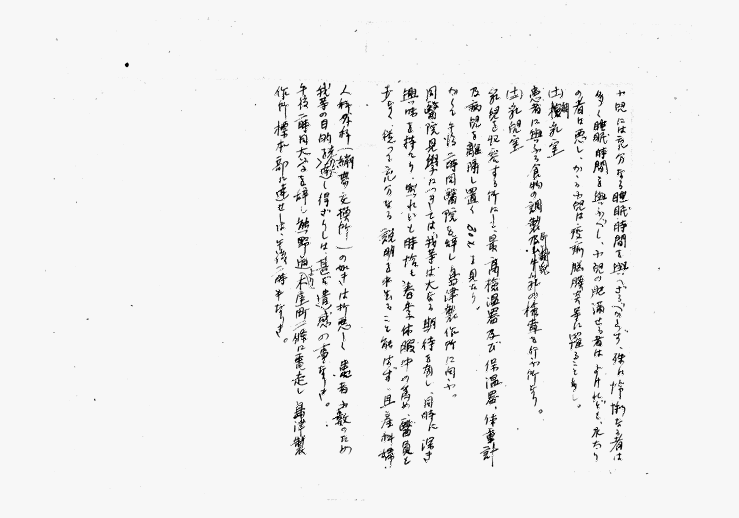 小児には充分なる睡眠時間を與へざるべからず、殊に怜悧なる者は
多く睡眠時間を與ふべし、小児の肥満せる者は よけれども、水太り
の者は悪し、かゝる小児は疫痢脳膜炎等に罹ること多し。
(十)哺乳室
患者に與ふる食物の調製及 牛乳の検査を行ふ所なり。
(十一)乳児室
乳児を収容する所にして、最高検温器及び保温器、体重計
及病児を離隔し置く を見たり。
かくて午後一時同醫院を辞し島津製作所に向ふ。
同醫院見學につきては我等は大なる期待を有し、同時に深き
興味を持てり、されど時恰も春季休暇中の為め、醫員も
少なく従って充分なる説明を求むること能はず、且産科婦
人科外科(繃帯交換所)の如きは折悪しく患者少数のため
我等の目的を達し得ざりしは甚だ遺憾の事なりき。
午後一時大学を辞し熊野通より木屋町二條に電走し島津製
作所標本部に達せしは、午後一時半なりき。